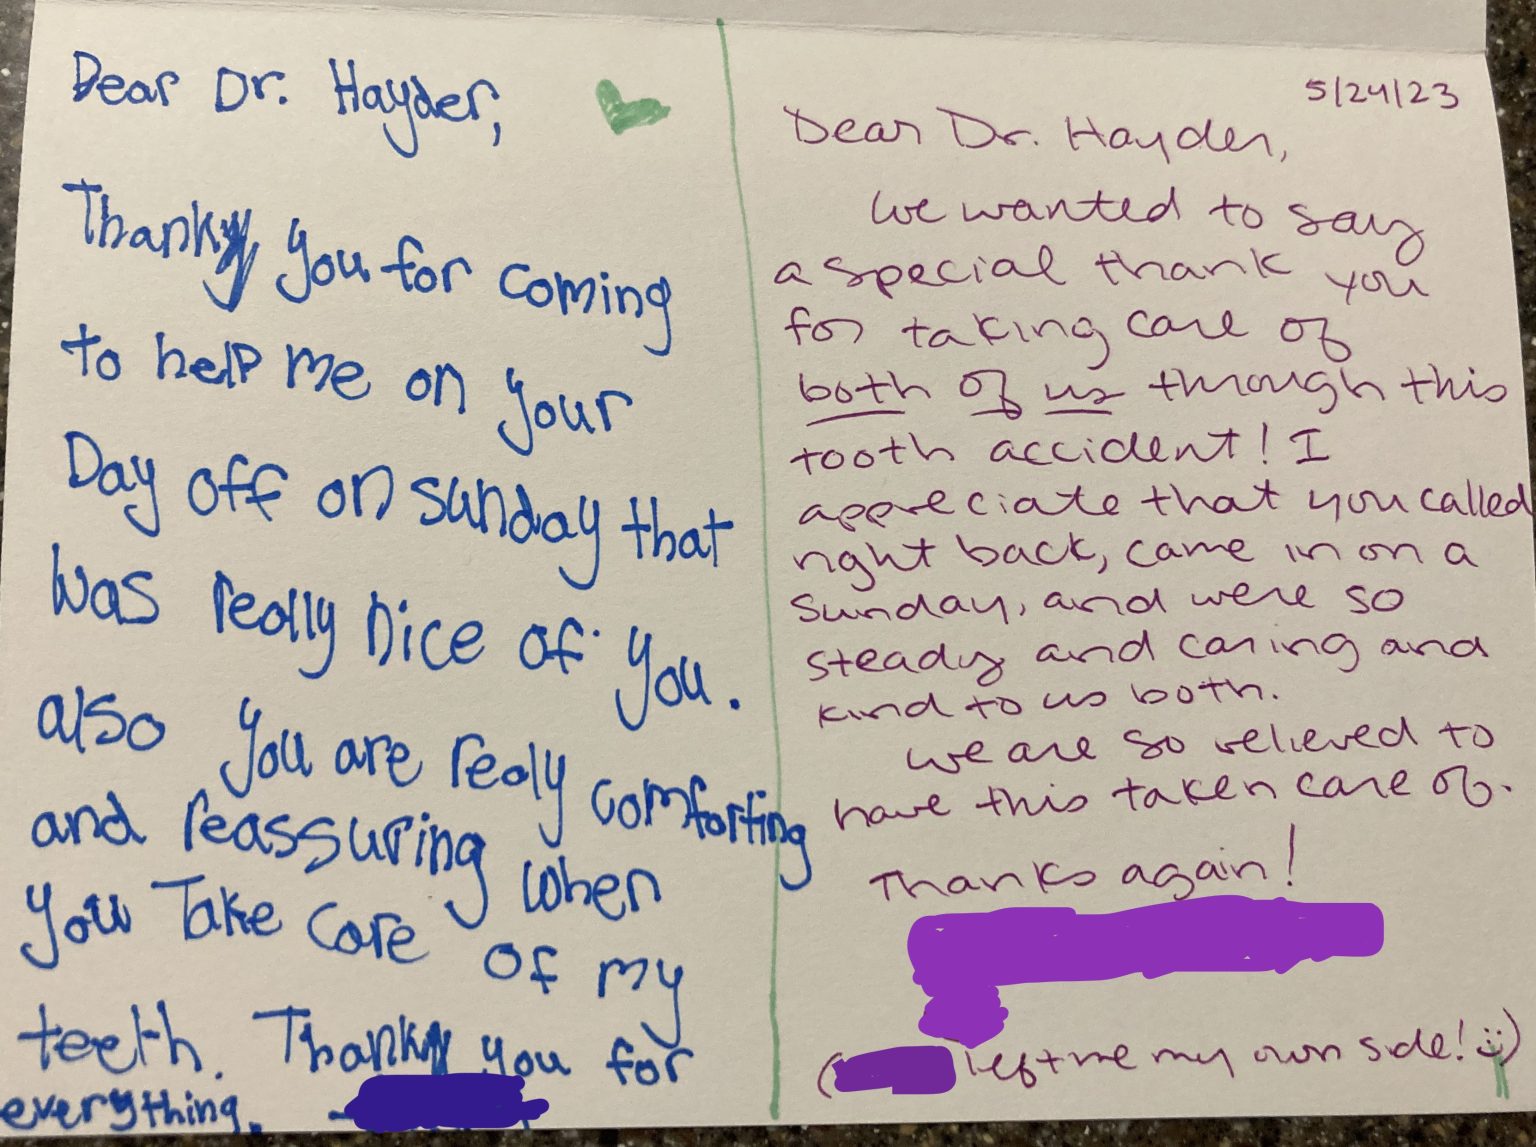 Dear Dr. Hayder,
Thank you for coming
to help me on your
Day off on sunday that
was really nice of you.
also you are realy comforting
and reassuring when
you Take care of my
teeth. Thank you for
everything.
5/24/23
Dear Dr. Hayder,
We wanted to say
a special thank you
for taking care of
both of us through this
tooth accident! I
appreciate that you called
right back, came in on a
Sunday, and were so
steady and caring and
kind to us both.
We are so relieved to
have this taken care of.
Thanks again!
( left me my own side! :))